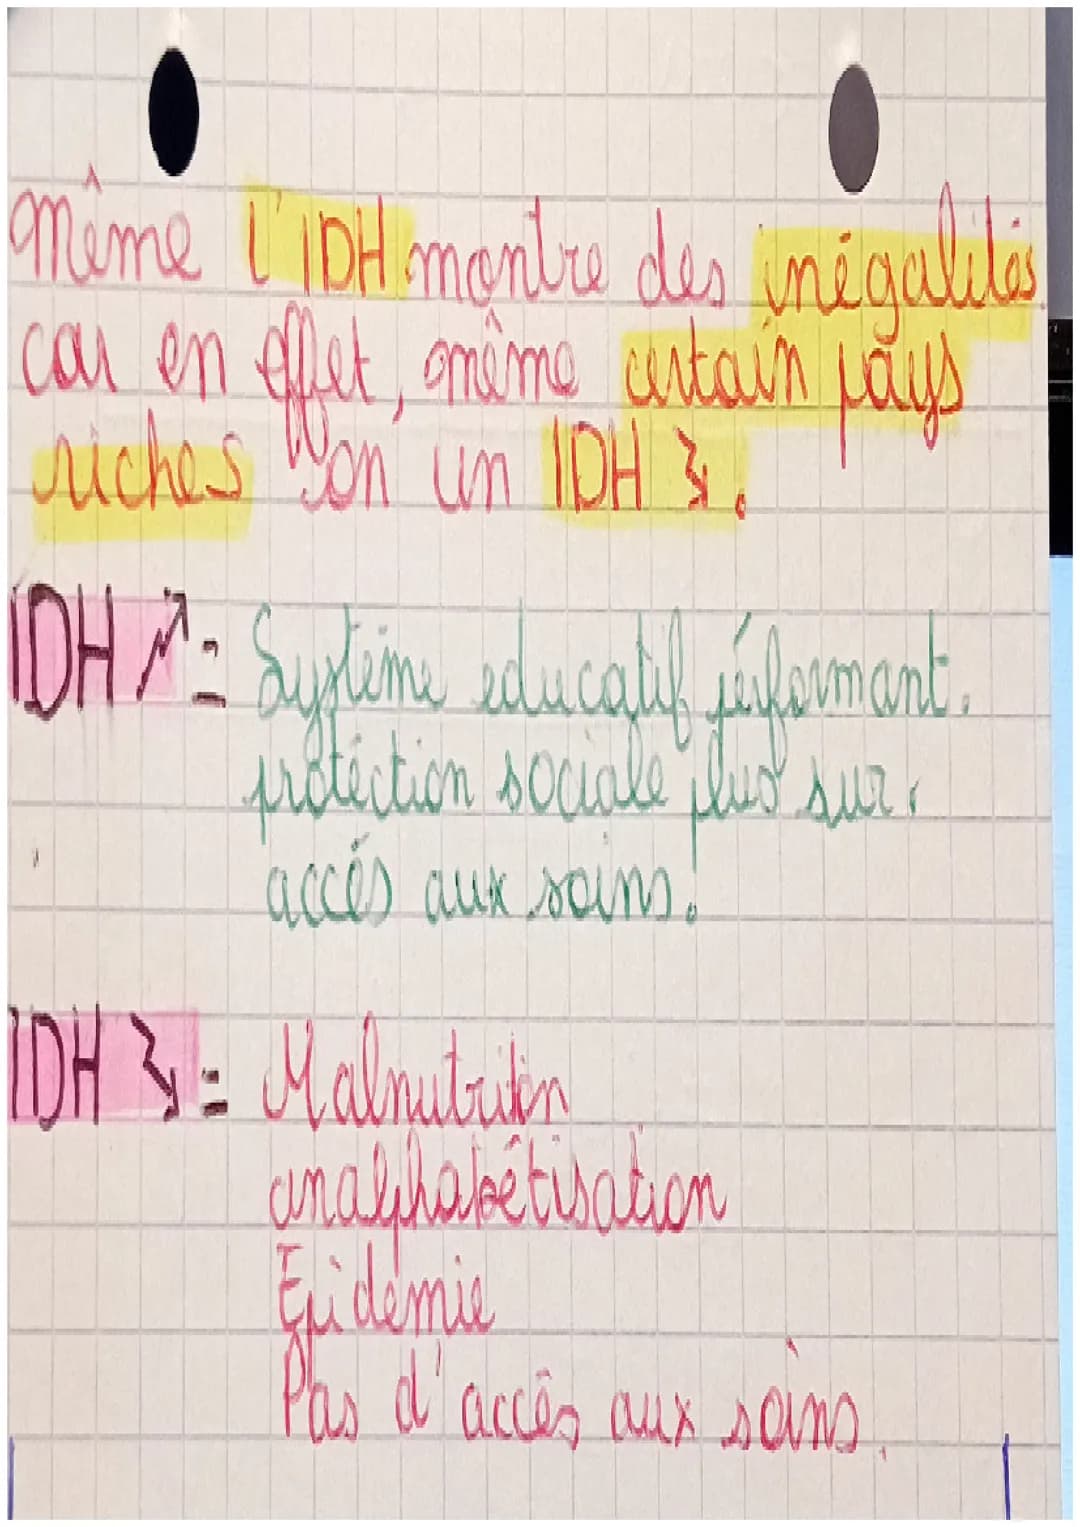 Même l'IDH montre des inégalités
car en effet, même certain pays
riches on un IDH ↘.
IDH ↗ = Système educatif pérformant.
protéction sociale plus sur.
accés aux soins.
IDH ↘ = Malnutrition
analphabétisation
Epidémie
Pas d'accès aux soins.